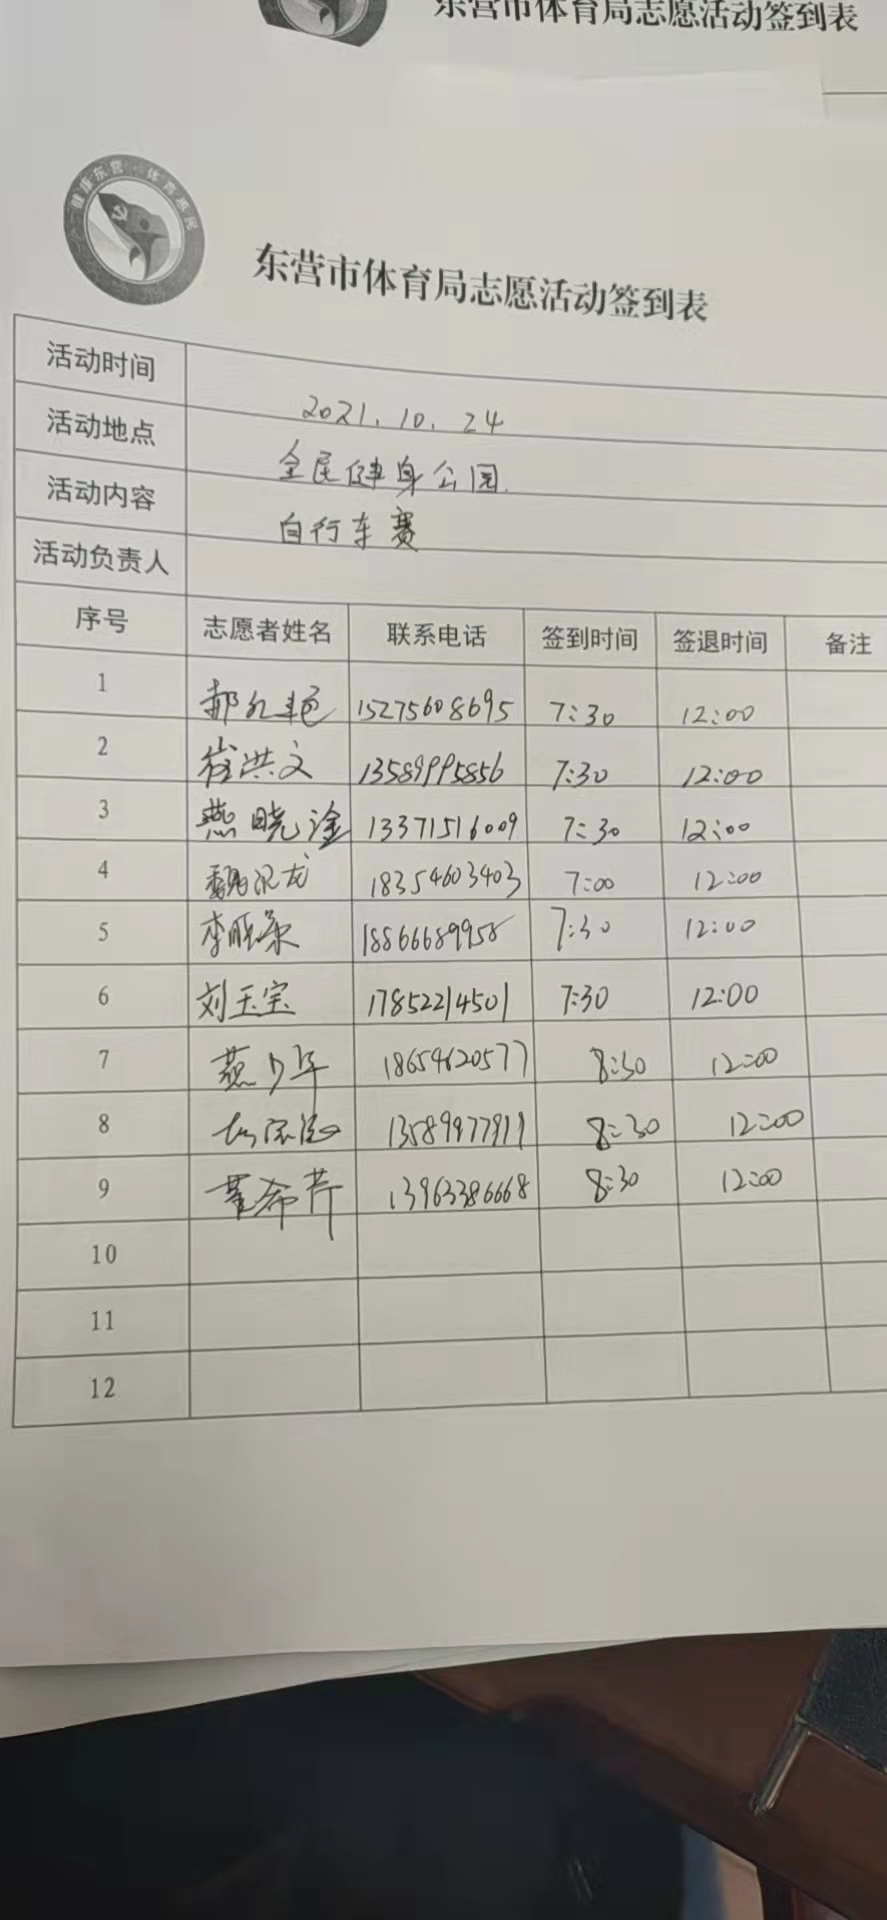 东营市体育局志愿活动签到表
健康东营·体育惠民
东营市体育局志愿活动签到表
活动时间 2021.10.24
活动地点 全民健身公园.
活动内容 自行车赛
活动负责人
序号 志愿者姓名 联系电话 签到时间 签退时间 备注
1 郝红艳 15275608695 7:30 12:00
2 崔洪文 13589995856 7:30 12:00
3 燕晓淦 13371516009 7:30 12:00
4 魏 龙 18354603403 7:00 12:00
5 李 18866689958 7:30 12:00
6 刘玉宝 17852214501 7:30 12:00
7 燕少华 18654620577 8:30 12:00
8 13589977919 8:30 12:00
9 董希芹 13963386668 8:30 12:00
10
11
12